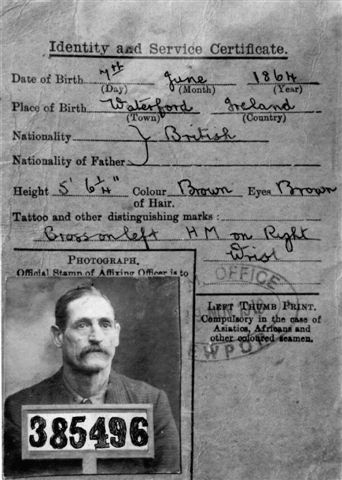 Identity and Service Certificate.
Date of Birth 7th June 1864
(Day) (Month) (Year)
Place of Birth Waterford Ireland
(Town) (Country)
Nationality } British
Nationality of Father
Height 5' 6¼" Colour of Hair. Brown Eyes Brown
Tattoo and other distinguishing marks :
Cross on left HM on Right
Wrist
PHOTOGRAPH.
Official Stamp of Affixing Officer is to
OFFICE
LEFT THUMB PRINT.
Compulsory in the case of
Asiatics, Africans and
other coloured seamen.
EWPO
385496